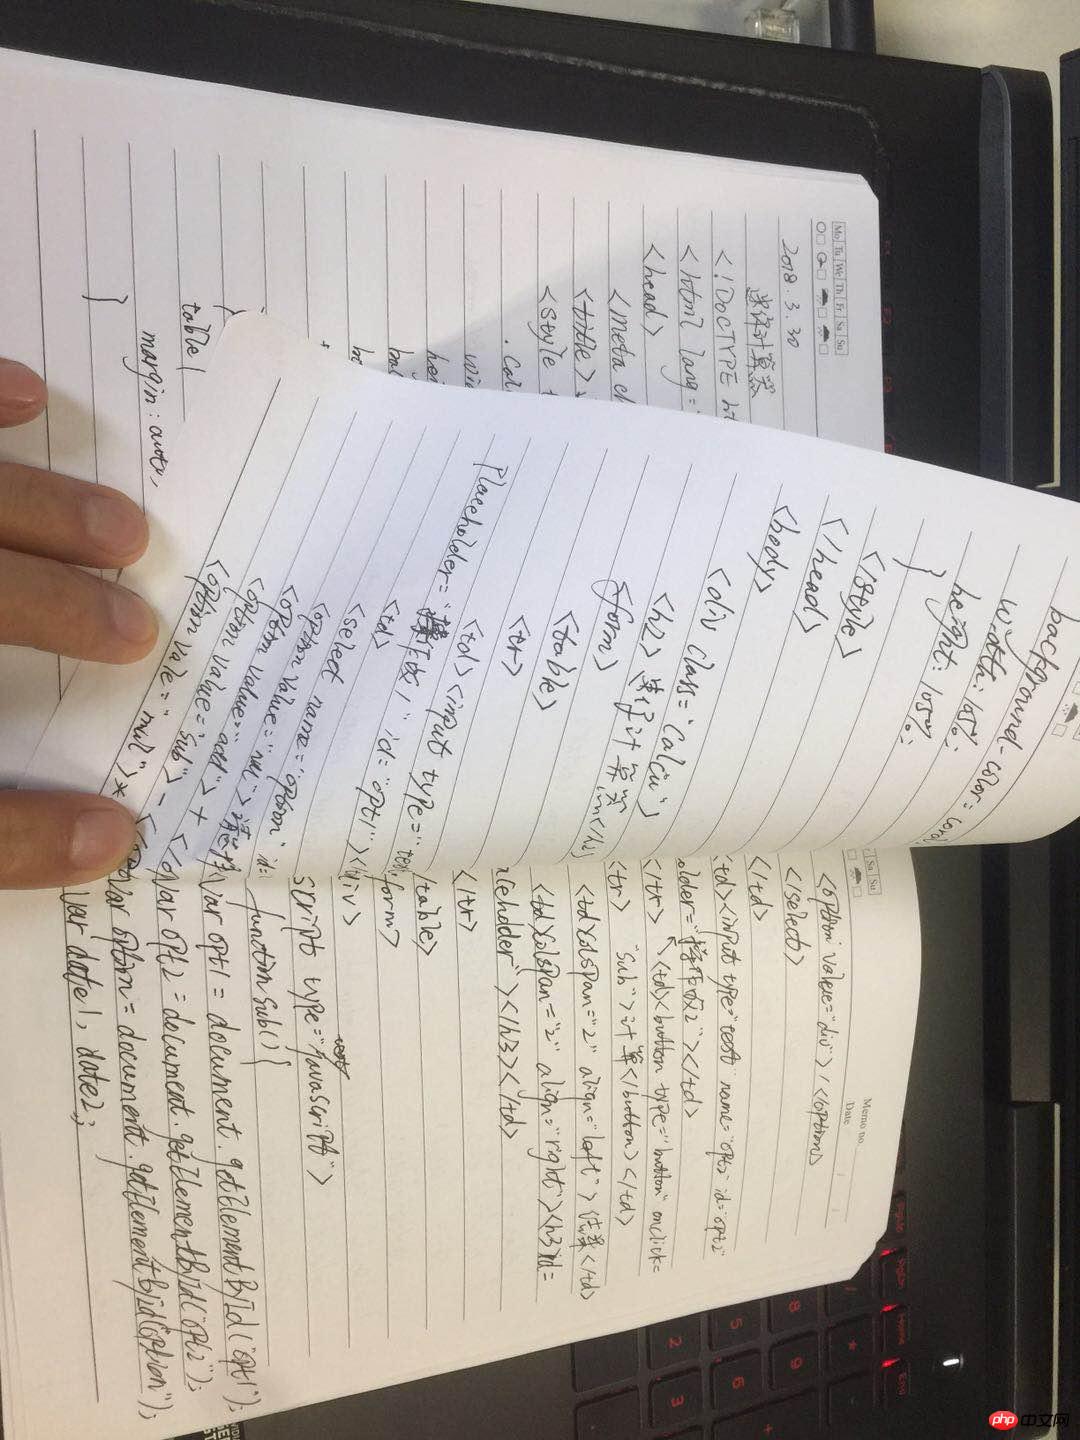 Mo Tu We Th Fr Sa Su
2018.3.30
<!DOCTYPE ht
<html lang=
<head>
<meta ch
<title>
<style
.Calc
wi
hei
table{
margin:auto;
}
background-color:coral
width:105%;
height:105%;
}
</style>
</head>
<body>
<div class="Calcu">
<h2>
<form>
<table>
<tr>
<td><input type="tex
placeholder="操作数1" id="opt1"></
<td>
<select name="option" id=
<option value="nul">
<option value="add">+</o
<option value="sub">-</o
<option value="mul">*
Memo no.
Date
Sa Su
<option value="div">/</option>
</select>
</td>
<td><input type="test" name="opt2" id="opt2"
older="操作数2"></td>
<td><button type="button" onclick=
</tr>
"Sub">计算</button></td>
<tr>
<td colspan="2" align="left">结果</td>
<td colspan="2" align="right"><h3 id=
aceholder"></h3></td>
</tr>
/table>
form>
iv>
script type="text/javascript">
function Sub(){
var opt1 = document.getElementById("opt1");
var opt2 = document.getElementById("opt2");
var option = document.getElementById("option");
var date1, date2;
2
3
5
6
8
9
*
+
php中文网